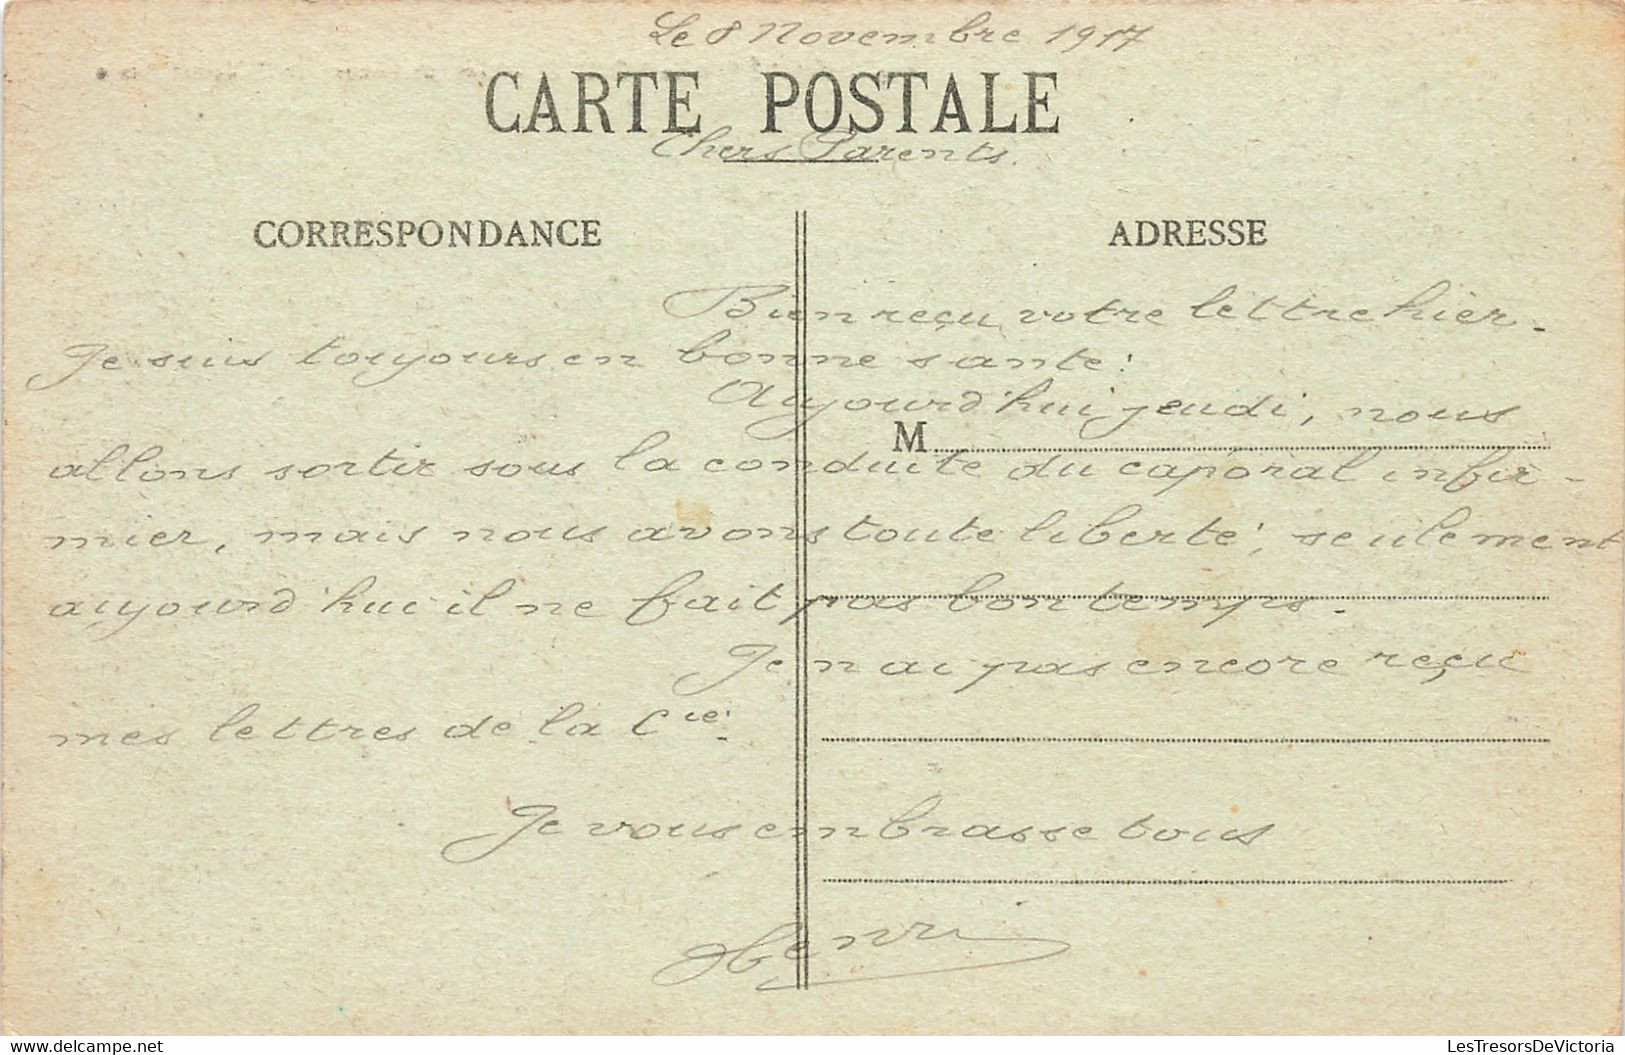 Le 8 Novembre 1917
CARTE POSTALE
Chers Parents.
CORRESPONDANCE
ADRESSE
Bien reçu votre lettre hier.
Je suis toujours en bonne santé.
Aujourd'hui jeudi, nous
M
allons sortir sous la conduite du caporal infir-
mier, mais nous avons toute liberté, seulement
aujourd'hui il ne fait pas bon temps.
Je n ai pas encore reçu
mes lettres de la Cie.
Je vous embrasse tous
Henri
delcampe.net
LesTresorsDeVictoria